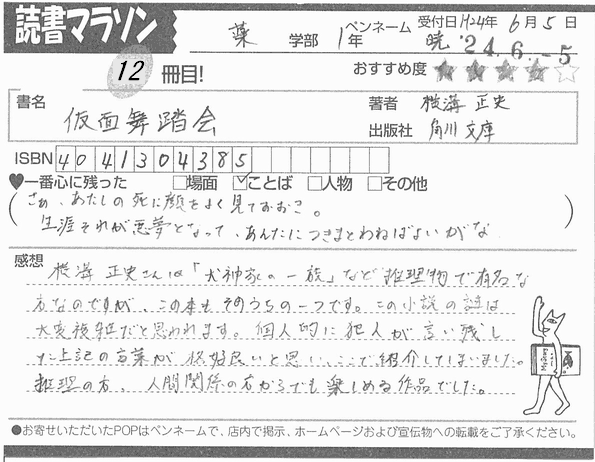 読書マラソン
薬 学部 1年 ペンネーム 暁 受付日 2024年 6月5日
'24.6.-5
12 冊目! おすすめ度 ★★★★☆
書名 仮面舞踏会
著者 横溝 正史
出版社 角川文庫
ISBN 4041304385
♥一番心に残った □場面 ☑ことば □人物 □その他
(さあ、あたしの死に顔をよく見ておおこ。
生涯それが悪夢となって、あんたにつきまとわねばよいがな)
感想 横溝 正史さんは「犬神家の一族」など推理物で有名な
方なのですが、この本もそのうちの一つです。この小説の謎は
大変複雑だと思われます。個人的に犯人が言い残し
た上記の言葉が格好良いと思い、ここで紹介してしまいました。
推理の方、人間関係の方からでも楽しめる作品でした。
●お寄せいただいたPOPはペンネームで、店内で掲示、ホームページおよび宣伝物への転載をご了承ください。